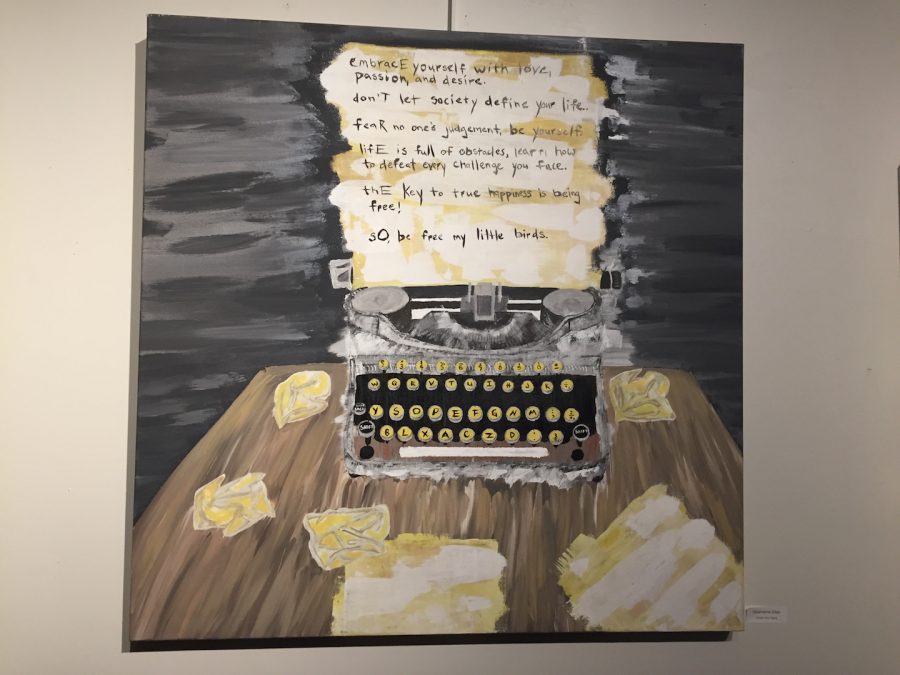 embracE yourself with love,
passion, and desire.
don'T let society define your life..
feaR no one's judgement, be yourself.
lifE is full of obstacles, learn how
to defeat every challenge you face.
thE Key to true happiness is being
free!
sO, be free my little birds.
Y S O P E F G N M
B L X A C Z D